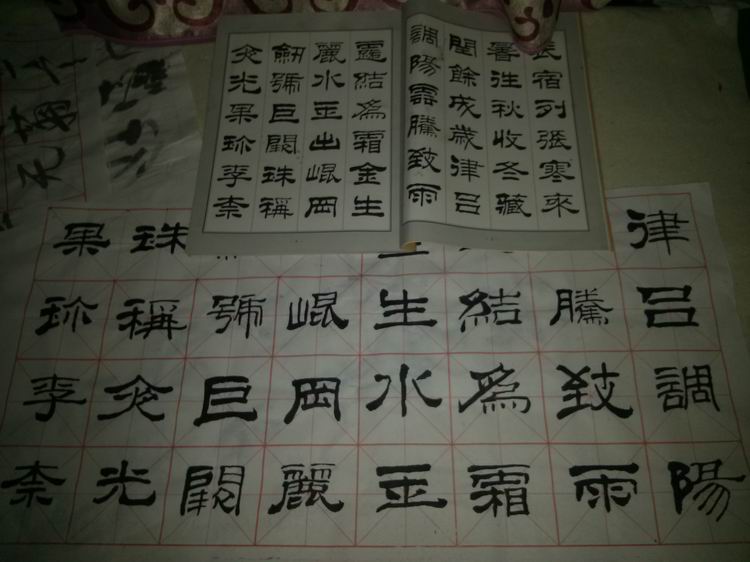 辰宿列張寒來
暑往秋收冬藏
閏餘成歲律呂
調陽雲騰致雨
露結爲霜金生
麗水玉出崐岡
劒號巨闕珠稱
夜光果珍李柰
律呂調陽
騰致雨
結爲霜
生水玉
崐岡麗
號巨闕
珠稱夜光
果珍李柰